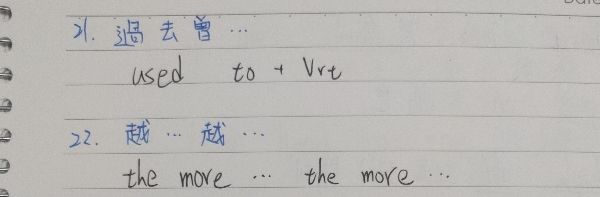 21. 過去曾…
used to + Vrt
22. 越…越…
the more … the more …